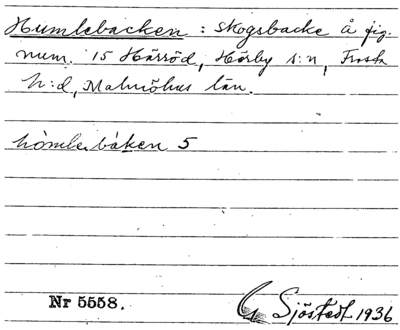 Humlebacken : skogsbacke å fig.
num. 15 Härröd, Hörby s:n, Frosta
h:d, Malmöhus län.
hòmlebáken 5
Nr 5558.
G. Sjöstedt 1936